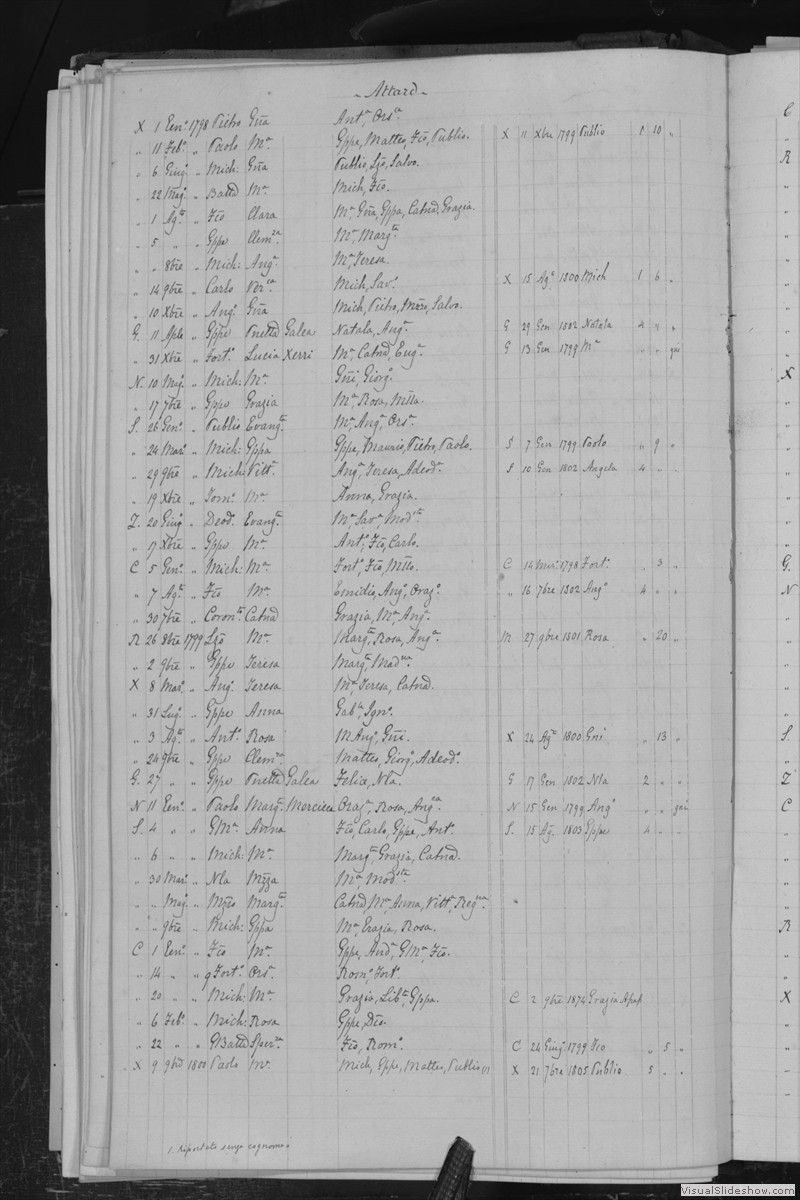 Attard
X 1 Gen.º 1798 Pietro Gña Ant.ª Ors.ª
" 11 Feb.º " Paolo M.ª Gppe, Matteo, Fco, Publio. X 11 Xbre 1799 Publio 1 10 "
" 6 Giug.º " Mich: Gña Publio, Lzo, Salvo.
" 22 Mag.º " Batta M.ª Mich, Fco.
" 1 Ag.to " Fco Clara M.ª Gña, Gppa, Catnd, Grazia.
" 5 " " Gppe Clem.za M.ª Marg.ta
" " 8bre " Mich: Ang.ª M.ª Teresa.
" 14 9bre " Carlo Ver.ca Mich, Sav.º X 15 Ag.º 1800 Mich 1 6 "
" 10 Xbre " Ang.º Gña Mich, Pietro, Mzzo, Salvo.
G. 11 Aple " Gppe Pnetta Galea Natala, Ang.ª G 29 Gen 1802 Natala 4 " "
" 31 Xbre " Fort.º Lucia Xerri M.ª Catnd, Eug.ª G 13 Gen 1798 M.ª " "
N. 10 Mag.º " Mich: M.ª Gñi, Giorg.º
" 17 7bre " Gppe Grazia M.ª Rosa, Mtta.
S. 26 Gen.º " Publio Evang.ta M.ª Ang.ª Ors.ª
" 24 Mar.º " Mich: Gppa Gppe, Maurio, Pietro, Paolo. S 7 Gen 1799 Paolo " 9 "
" 29 9bre " Mich: Vitt.ª Ang.ª Teresa, Adeod.ª S 10 Gen 1802 Angela 4 " "
" 19 Xbre " Tom.º M.ª Anna, Grazia.
Z. 20 Giug.º " Deod.º Evang.ta M.ª Sav.ª Mod.ta
" 17 Xbre " Gppe M.ª Ant.º, Fco, Carlo.
C 5 Gen.º " Mich: M.ª Fort.º, Fco, Mtto. C 14 Mar.º 1798 Fort.º " 3 "
" 7 Ag.to " Fco M.ª Emidio, Ang.º, Oraz.º " 16 7bre 1802 Ang.º 4 " "
" 30 7bre " Coron.to Catnd Grazia, M.ª Ang.ª
R 26 8bre 1799 Lzo M.ª Marg.ta Rosa, Ang.ª M 27 9bre 1801 Rosa " 20 "
" 2 9bre " Gppe Teresa Marg.ta Mad.na
X 8 Mar.º " Ang.º Teresa M.ª Teresa, Catnd.
" 31 Lug.º " Gppe Anna Gab.le Ign.º
" 3 Ag.to " Ant.º Rosa M. Ang.ª, Gñi. X 24 Ag.to 1800 Gñi " 13 "
" 24 9bre " Gppe Clem.za Matteo, Giorg.º, Adeod.º
G. 27 " " Gppe Pnetta Galea Felice, Nla. G 17 Gen 1802 Nla 2 " "
N 11 Gen.º " Paolo Marg.ta Mercieca Oraz.º, Rosa, Ang.ca N 15 Gen 1799 Ang.º " "
S. 4 " " GMª Anna Fco, Carlo, Gppe, Ant.º S. 15 Ag.º 1803 Gppe 4 " "
" 6 " " Mich: M.ª Marg.ta Grazia, Catnd.
" 30 Mar.º " Nla Mzza M.ª Mod.ta
" " Mag.º " Mzzo Marg.ta Catnd M.ª Anna, Vitt.ª Reg.na
" " 9bre " Mich: Gppa M.ª Grazia, Rosa.
C 1 Gen.º " Fco M.ª Gppe, And.ª GMª, Fco.
" 14 " " Fort.º Ors.ª Rom.º, Fort.º
" 20 " " Mich: M.ª Grazia, Lib.ta, Gppa. C 2 9bre 1874 Grazia Apap
" 6 Feb.º " Mich: Rosa Gppe, Dco.
" 22 " " GBatta Sper.za Fco, Rom.º C 24 Giug.º 1799 Fco " 5 "
X 9 9bre 1800 Paolo M.ª Mich, Gppe, Matteo, Publio (1) X 21 7bre 1805 Publio 5 " "
1. riportato senza cognome.
VisualSlideshow.com